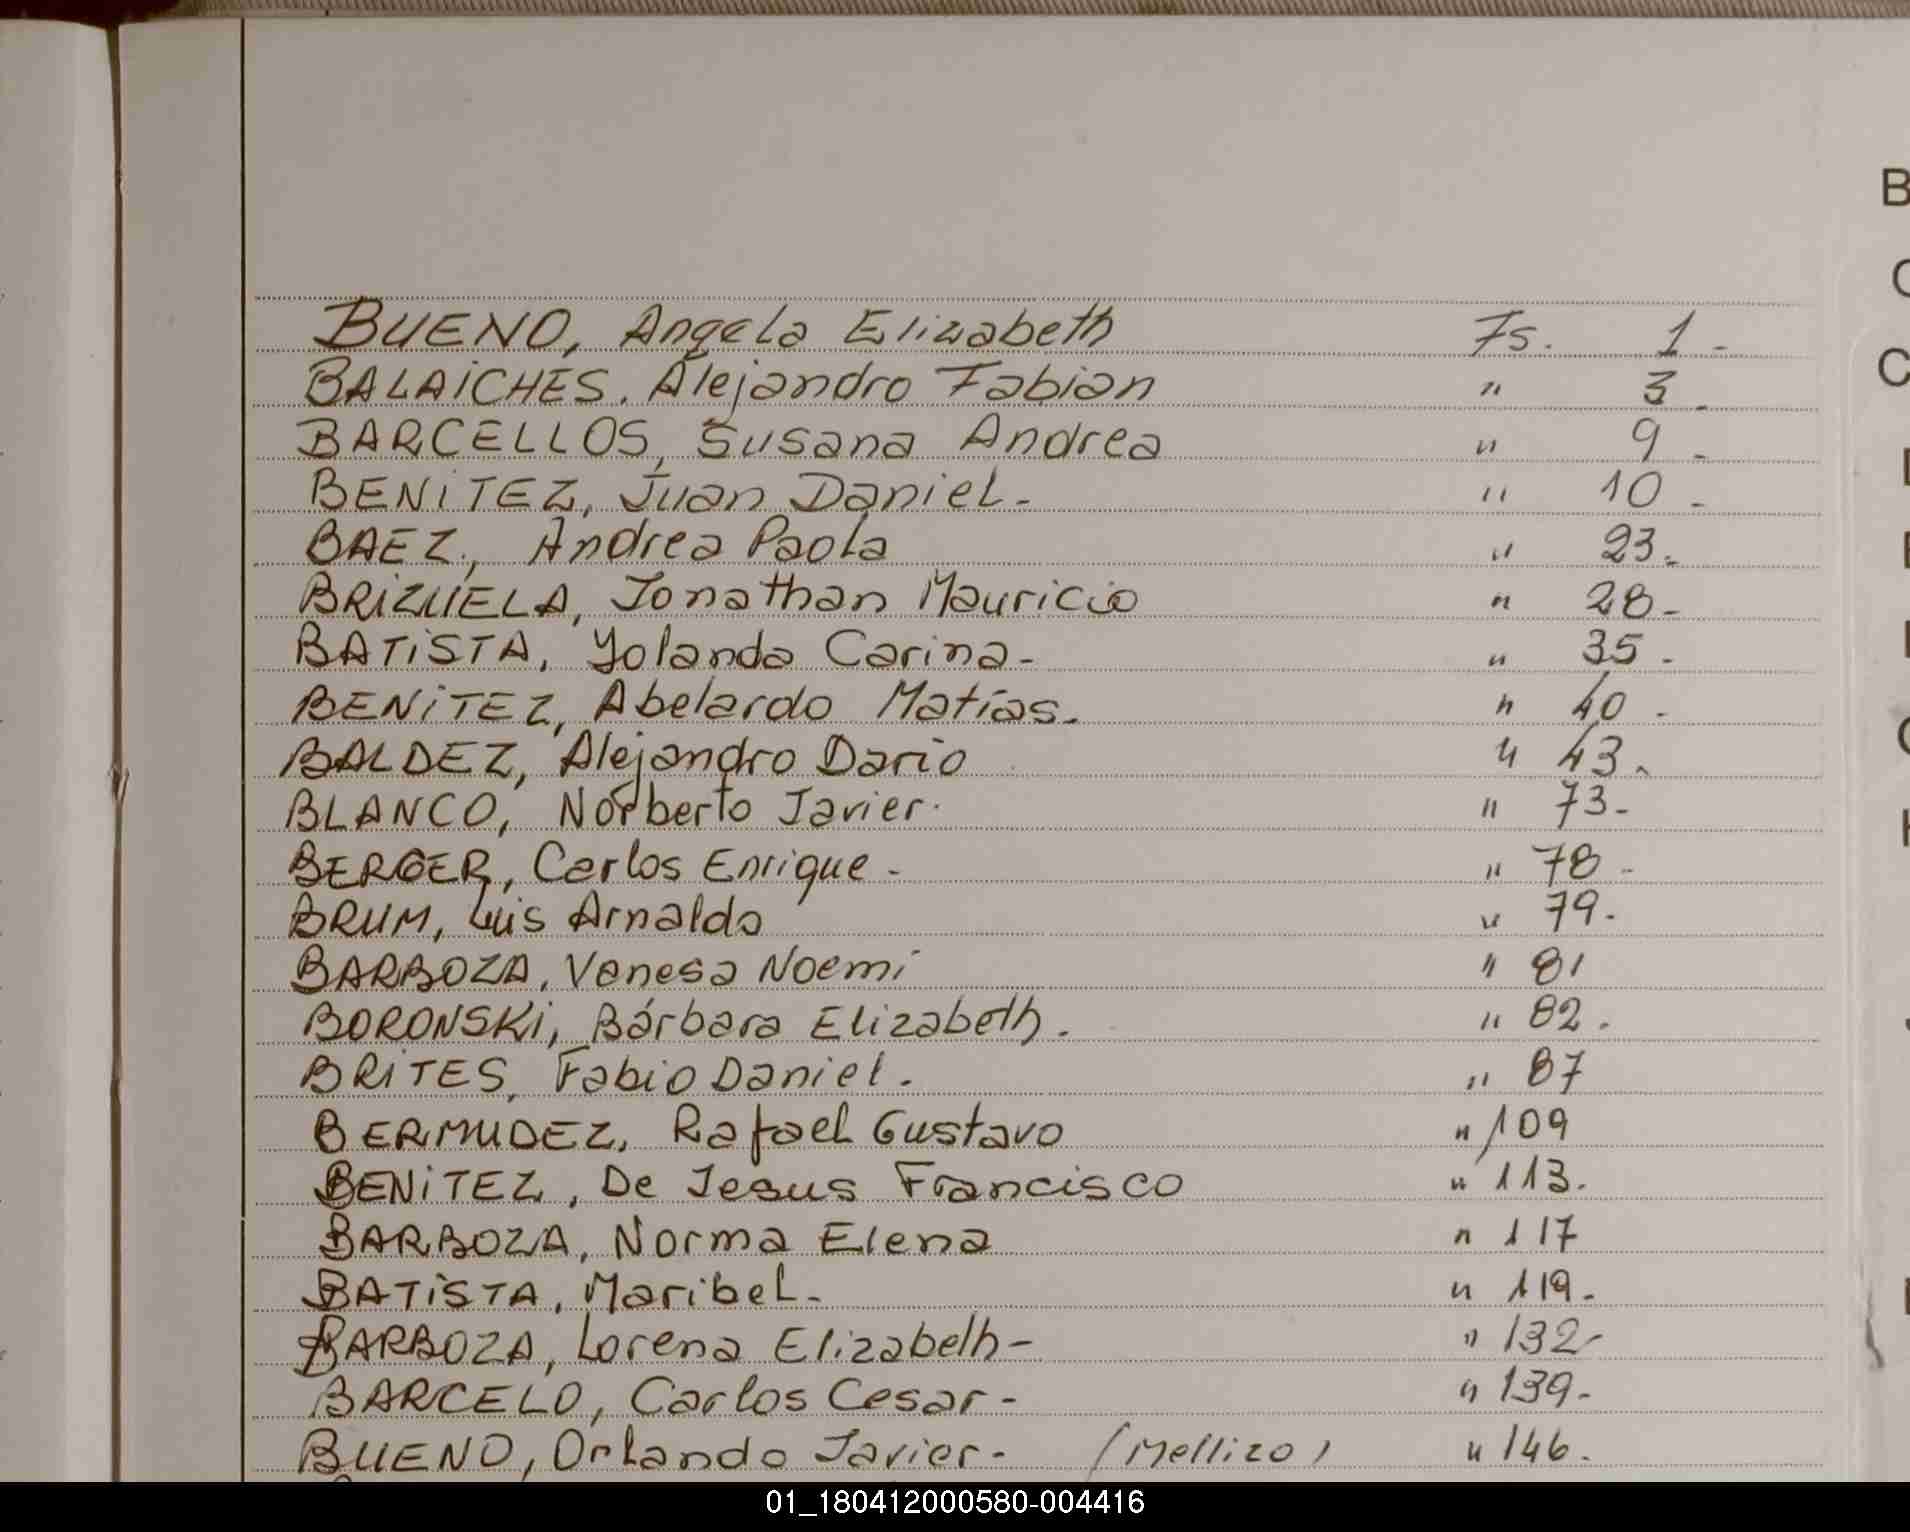 BUENO, Angela Elizabeth Fs. 1 -
BALAICHES. Alejandro Fabian " 3 -
BARCELLOS, Susana Andrea " 9 -
BENITEZ, Juan Daniel - " 10 -
BAEZ, Andrea Paola " 23 -
BRIZUELA, Jonathan Mauricio " 28 -
BATISTA, Yolanda Carina - " 35 -
BENITEZ, Abelardo Matías - " 40 -
BALDEZ, Alejandro Dario " 43 -
BLANCO, Norberto Javier. " 73 -
BERGER, Carlos Enrique - " 78 -
BRUM, Luis Arnaldo " 79 -
BARBOZA, Vanesa Noemí " 81
BORONSKI, Bárbara Elizabeth. " 82.
BRITES, Fabio Daniel. " 87
BERMUDEZ, Rafael Gustavo " 109
BENITEZ, De Jesus Francisco " 113.
BARBOZA, Norma Elena " 117
BATISTA, Maribel - " 119.
BARBOZA, Lorena Elizabeth - " 132 -
BARCELO, Carlos Cesar - " 139 -
BUENO, Orlando Javier - (Mellizo) " 146.
B
C
01_180412000580-004416